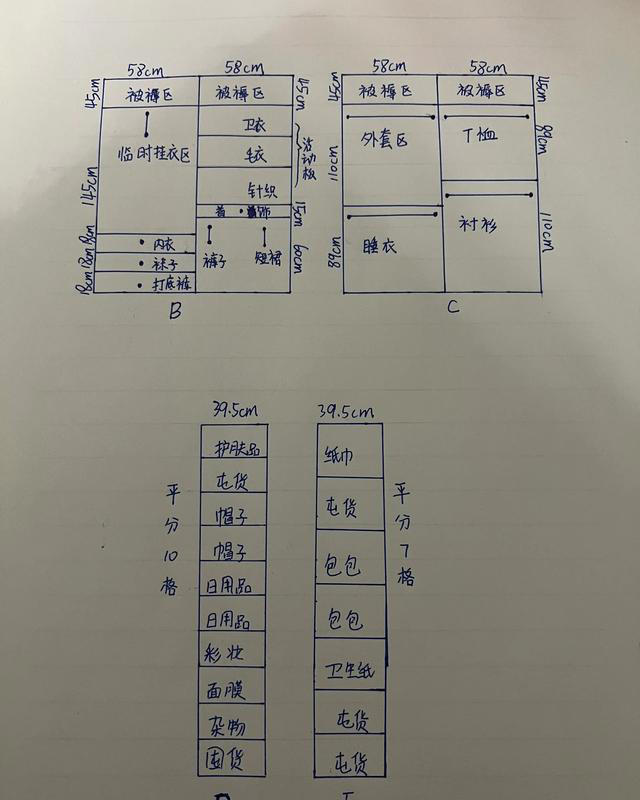 58cm 58cm
45cm
被褥区 被褥区
45cm
临时挂衣区
145cm
18cm
18cm
18cm
内衣
袜子
打底裤
卫衣
毛衣
针织
活动板
首饰
15cm
裤子 短裙
60cm
B
58cm 58cm
45cm
被褥区 被褥区
45cm
外套区
110cm
睡衣
89cm
T恤
89cm
衬衫
110cm
C
39.5cm
平分10格
护肤品
屯货
帽子
帽子
日用品
日用品
彩妆
面膜
杂物
囤货
39.5cm
平分7格
纸巾
屯货
包包
包包
卫生纸
屯货
屯货